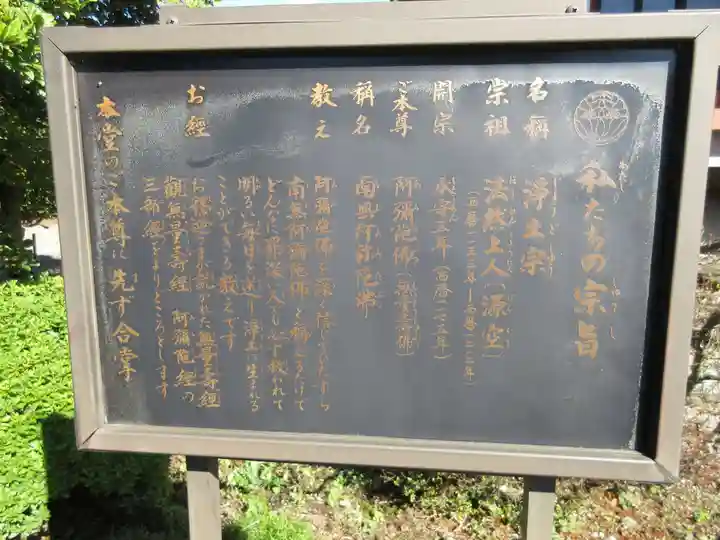 私たちの宗旨
名稱 浄土宗
宗祖 法然上人(源空)
(西暦一一三三年—西暦一二一二年)
開宗 承安五年(西暦一一七五年)
ご本尊 阿彌陀佛(無量壽佛)
稱名 南無阿弥陀佛
教え 阿彌陀佛を深く信じひたすら
南無阿彌陀佛と稱えるだけで
どんなに罪深い人でも必ず救われて
明るい毎日を送り浄土に生まれる
ことができる教えです
お經 お釋迦さまが説かれた無量壽經
觀無量壽經 阿彌陀經の
三部經をよりどころとします
本堂のご本尊に先ず合掌